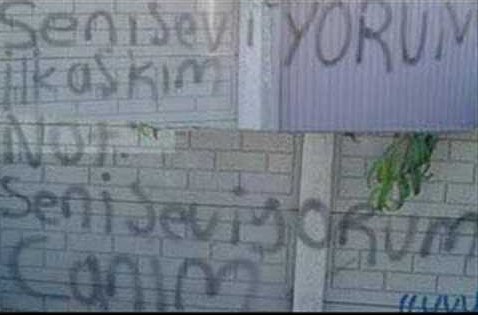 Seni Seviyorum
ilk aşkım
NOT:
Seni Seviyorum
Canım